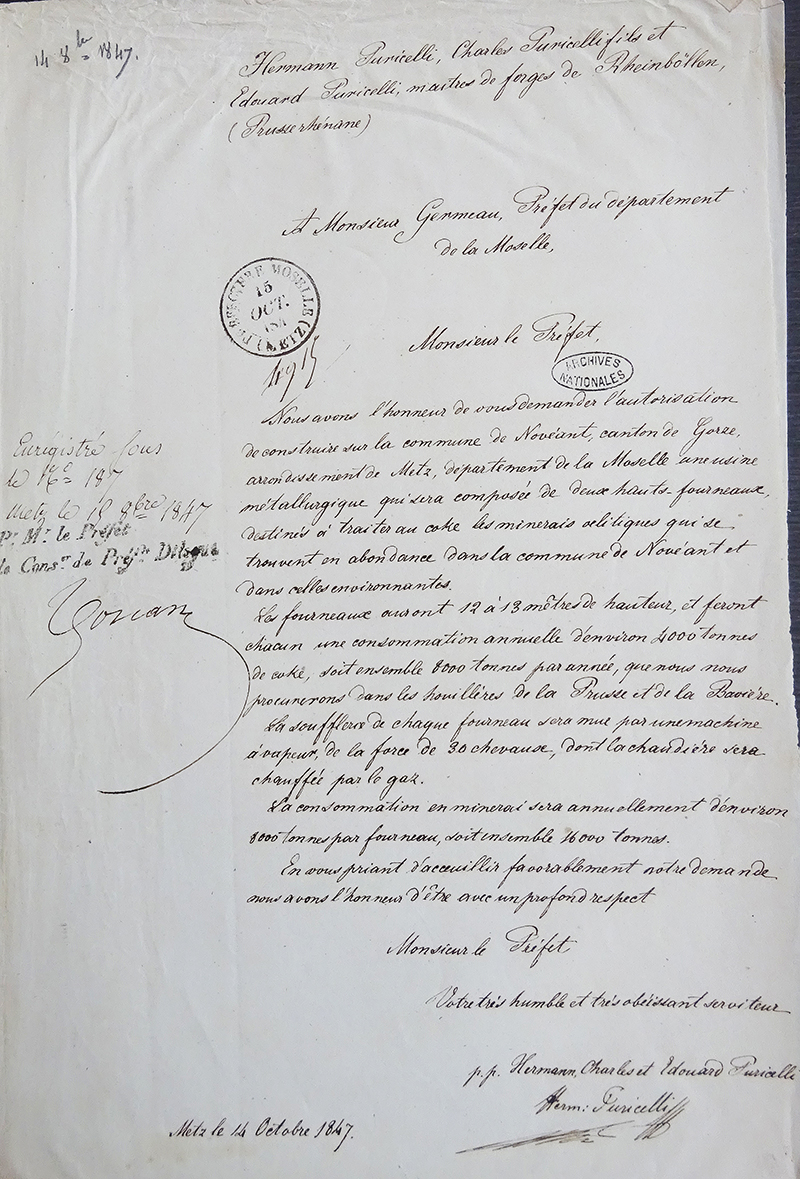 14 8bre 1847.
Hermann Puricelli, Charles Puricelli fils et
Edouard Puricelli, maitres de forges de Rheinböllen,
(Prusse rhénane)
A Monsieur Germeau, Préfet du département
de la Moselle,
PREFECTURE MOSELLE (METZ)
15
OCT.
184
Monsieur le Préfet,
ARCHIVES
NATIONALES
Nous avons l'honneur de vous demander l'autorisation
de construire sur la commune de Novéant, canton de Gorze,
arrondissement de Metz, département de la Moselle une usine
métallurgique qui sera composée de deux hauts-fourneaux,
destinés à traiter au coke les minerais oolitiques qui se
trouvent en abondance dans la commune de Novéant et
dans celles environnantes.
Les fourneaux auront 12 à 13 mètres de hauteur, et feront
chacun une consommation annuelle d'environ 4000 tonnes
de coke, soit ensemble 8000 tonnes par année, que nous nous
procurerons dans les houillères de la Prusse et de la Bavière.
La soufflerie de chaque fourneau sera mue par une machine
à vapeur, de la force de 30 chevause, dont la chaudière sera
chauffée par le gaz.
La consommation en minerai sera annuellement d'environ
8000 tonnes par fourneau, soit ensemble 16000 tonnes.
En vous priant d'acceuillir favorablement notre demande
nous avons l'honneur d'être avec un profond respect
Monsieur le Préfet
Votre très humble et très obéissant serviteur
p.p. Hermann, Charles et Edouard Puricelli
Herm: Puricelli
Metz le 14 Octobre 1847.
Enrégistré sous
le
Metz le 18 8bre 1847
Pr. Mr. le Préfet
le Consr. de Préfre. Délégué